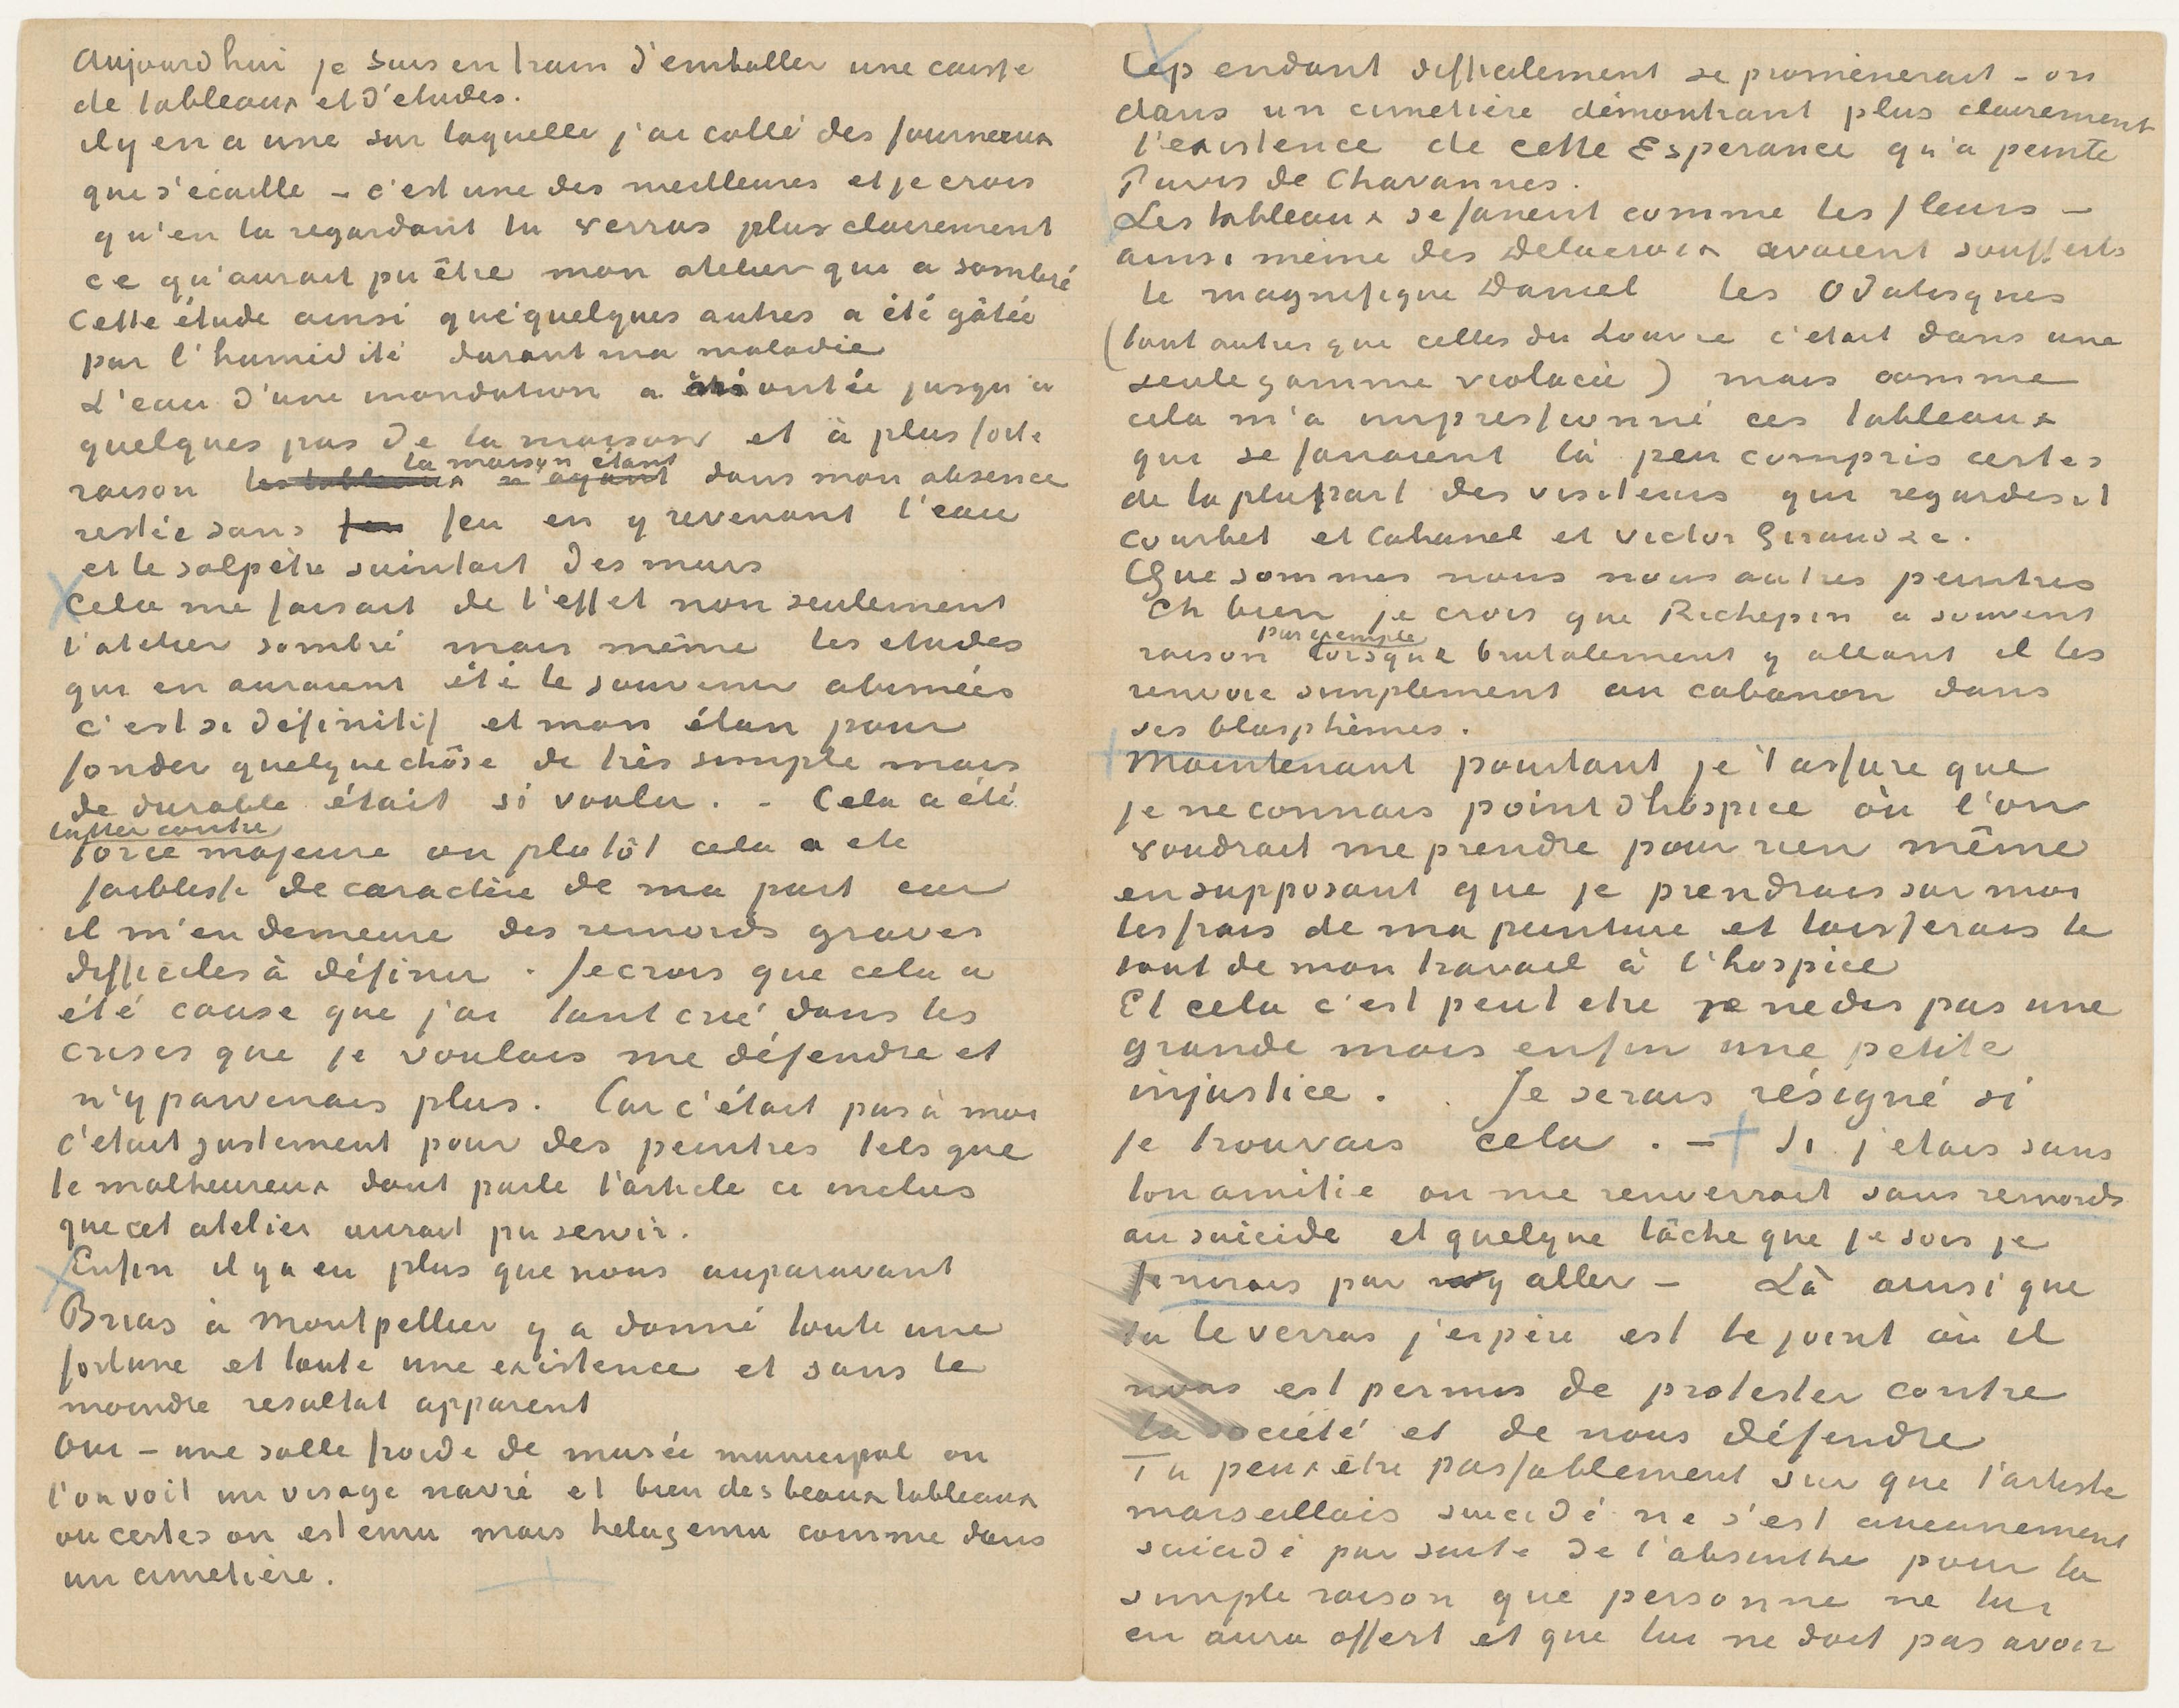 Aujourd'hui je suis en train d'emballer une caisse
de tableaux et d'etudes.
il y en a une sur laquelle j'ai collé des journeaux
qui s'écaille – c'est une des meilleures et je crois
qu'en la regardant tu verras plus clairement
ce qu'aurait pu être mon atelier qui a sombré
Cette étude ainsi que quelques autres a été gâtée
par l'humidité durant ma maladie
L'eau d'une inondation a montée jusqu'à
quelques pas de la maison et à plus forte
la maison étant
raison les tableaux se ayant dans mon absence
restée sans feu feu en y revenant l'eau
et le salpètre suintait des murs
Cela me faisait de l'effet non seulement
l'atelier sombré mais même les etudes
qui en auraient été le souvenir abimées
c'est si définitif et mon élan pour
fonder quelque chôse de très simple mais
de durable était si voulu. – Cela a été
lutter contre
force majeure ou plutôt cela a ete
faiblesse de caractère de ma part car
il m'en demeure des remords graves
difficiles à définir. Je crois que cela a
été cause que j'ai tant crié dans les
crises que je voulais me défendre et
n'y parvenais plus. Car c'était pas à moi
c'etait justement pour des peintres tels que
le malheureux dont parle l'article ci inclus
que cet atelier aurait pu servir.
Enfin il y a eu plus que nous auparavant
Brias à Montpellier y a donné toute une
fortune et toute une existence et sans le
moindre resultat apparent
Oui – une salle froide de musée municipal ou
l'on voit un visage navré et bien des beaux tableaux
ou certes on est emu mais helas emu comme dans
un cimetière.
Cependant difficilement se promènerait-on
dans un cimetière démontrant plus clairement
l'existence de cette Esperance qu'a peinte
Puvis de Chavannes.
Les tableaux se fanent comme les fleurs –
ainsi même des Delacroix avaient soufferts
le magnifique Daniel les Odalisques
(tout autres que celles du Louvre c'etait dans une
seule gamme violacée) mais comme
cela m'a impressionné ces tableaux
qui se fanaient là peu compris certes
de la plupart des visiteurs qui regardent
Courbet et Cabanel et Victor Giraud &c.
Que sommes nous nous autres peintres
Eh bien je crois que Richepin a souvent
par exemple
raison lorsque brutalement y allant il les
renvoie simplement au cabanon dans
ses blasphèmes.
Maintenant pourtant je t'assure que
je ne connais point d'hospice où l'on
voudrait me prendre pour rien même
en supposant que je prendrais sur moi
les frais de ma peinture et laisserais le
tout de mon travail à l'hospice
Et cela c'est peut etre je ne dis pas une
grande mais enfin une petite
injustice. . Je serais résigné si
je trouvais cela. – Si j'etais sans
ton amitie on me renverrait sans remords
au suicide et quelque lâche que je sois je
finirais par y aller – Là ainsi que
tu le verras j'espère est le joint où il
nous est permis de protester contre
la société et de nous défendre
Tu peux être passablement sur que l'artiste
marseillais suicidé ne s'est aucunement
suicidé par suite de l'absinthe pour la
simple raison que personne ne lui
en aura offert et que lui ne doit pas avoir